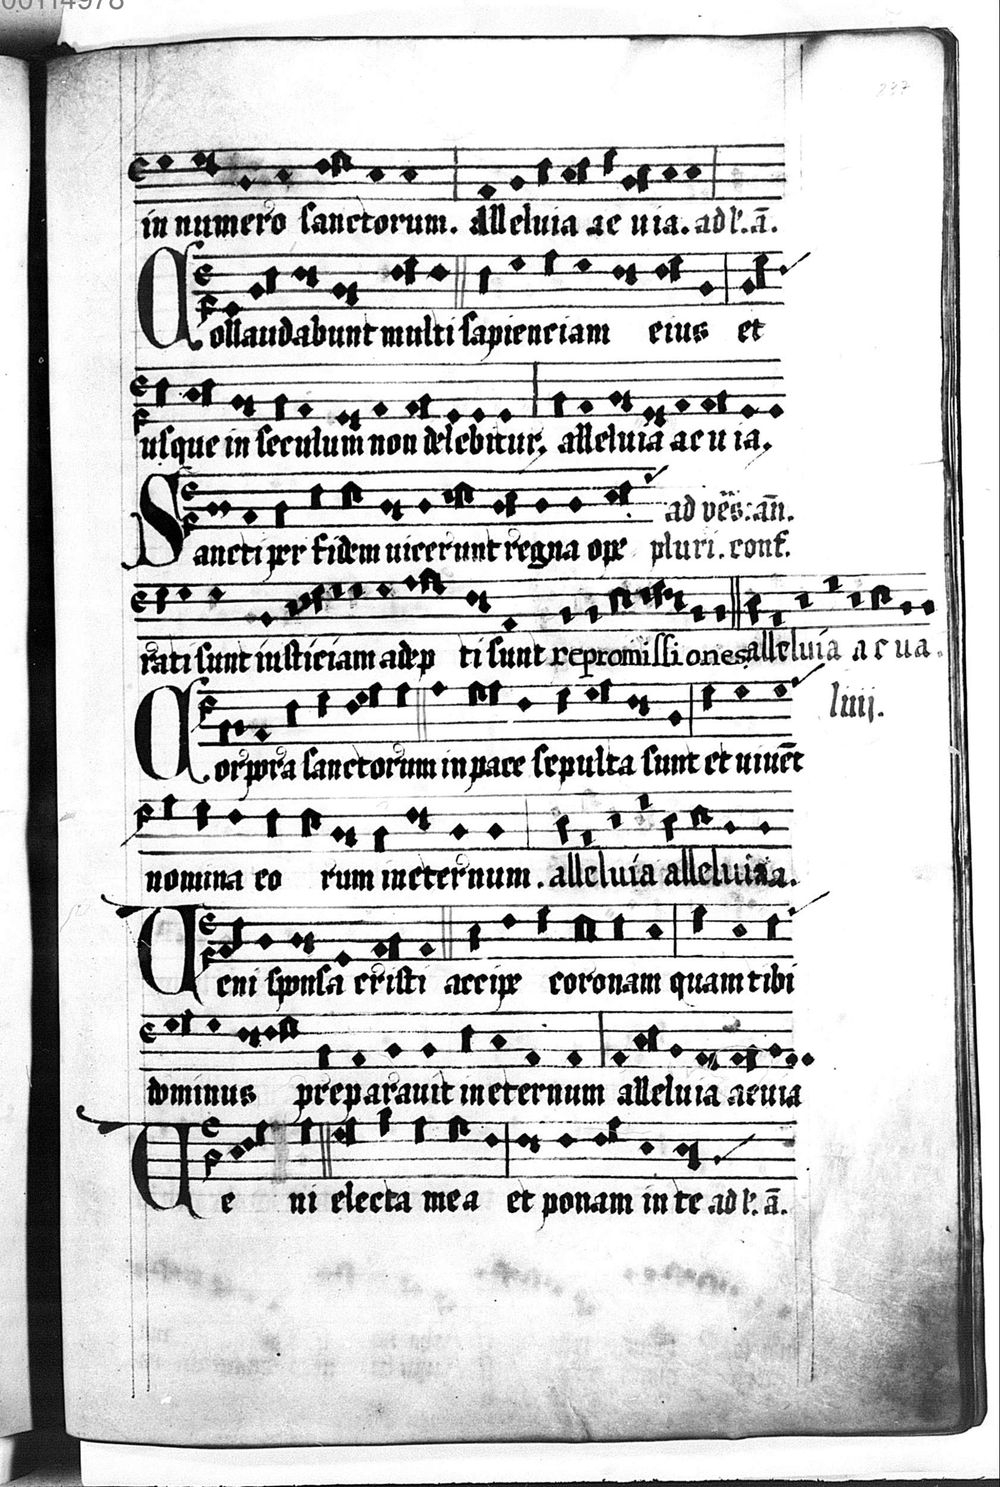 00114978
237
in numero sanctorum. Alleluia ae uia. ad l'. ā.
Collaudabunt multi sapienciam eius et
usque in seculum non delebitur. alleluia ae u ia.
ad ve̅s: an̅.
Sancti per fidem uicerunt regna ope pluri. conf.
rati sunt iusticiam adep ti sunt repromissiones alleluia a e ua.
liiij.
Corpora sanctorum in pace sepulta sunt et uiue̅t
nomina eo rum in eternum. alleluia alleluia.
Ueni sponsa cristi accipe coronam quam tibi
dominus preparauit in eternum alleluia aeuia
Ue ni electa mea et ponam in te ad l'. ā.